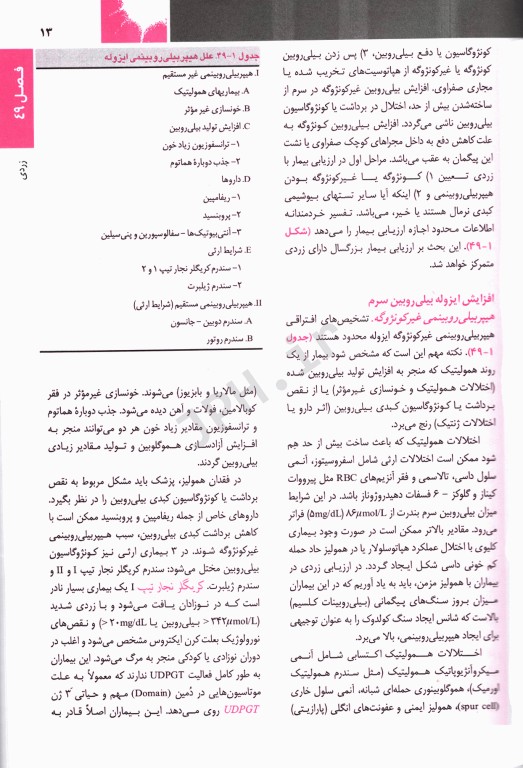 ۱۳
فصل ۴۹
زردی
کونژوگاسیون یا دفع بیلی‌روبین، ۳) پس زدن بیلی‌روبین
کونژوگه یا غیرکونژوگه از هپاتوسیت‌های تخریب شده یا
مجاری صفراوی. افزایش بیلی‌روبین غیرکونژوگه در سرم از
ساخته‌شدن بیش از حد، اختلال در برداشت یا کونژوگاسیون
بیلی‌روبین ناشی می‌گردد. افزایش بیلی‌روبین کونژوگه به
علت کاهش دفع به داخل مجراهای کوچک صفراوی یا نشت
این پیگمان به عقب می‌باشد. مراحل اول در ارزیابی بیمار با
زردی تعیین ۱) کونژوگه یا غیرکونژوگه بودن
هیپربیلی‌روبینمی و ۲) اینکه آیا سایر تستهای بیوشیمی
کبدی نرمال هستند یا خیر، می‌باشد. تفسیر خردمندانه
اطلاعات محدود اجازه ارزیابی بیمار را می‌دهد (شکل
۱-۴۹). این بحث بر ارزیابی بیمار بزرگسال دارای زردی
متمرکز خواهد شد.
افزایش ایزوله بیلی‌روبین سرم
هیپربیلی‌روبینمی غیرکونژوگه. تشخیص‌های افتراقی
هیپربیلی‌روبینمی غیرکونژوگه ایزوله محدود هستند (جدول
۱-۴۹). نکته مهم این است که مشخص شود بیمار از یک
روند همولیتیک که منجر به افزایش تولید بیلی‌روبین شده
(اختلالات همولیتیک و خونسازی غیرمؤثر) یا از نقص
برداشت یا کونژوگاسیون کبدی بیلی‌روبین (اثر دارو یا
اختلالات ژنتیک) رنج می‌برد.
اختلالات همولیتیک که باعث ساخت بیش از حد هم
شود ممکن است اختلالات ارثی شامل اسفروسیتوز، آنمی
سلول داسی، تالاسمی و فقر آنزیم‌های RBC مثل پیرووات
کیناز و گلوکز - ۶ فسفات دهیدروژناز باشد. در این شرایط
میزان بیلی‌روبین سرم بندرت از ۸۶μmol/L (۵mg/dL) فراتر
می‌رود. مقادیر بالاتر ممکن است در صورت وجود بیماری
کلیوی با اختلال عملکرد هپاتوسلولار یا در همولیز حاد حمله
کم خونی داسی شکل ایجاد گردد. در ارزیابی زردی در
بیماران با همولیز مزمن، باید به یاد آوریم که در این بیماران
میزان بروز سنگ‌های پیگمانی (بیلی‌روبینات کلسیم)
بالاست که شانس ایجاد سنگ کولدوک را به عنوان توجیهی
برای ایجاد هیپربیلی‌روبینمی، بالا می‌برد.
اختلالات همولیتیک اکتسابی شامل آنمی
میکروآنژیوپاتیک همولیتیک (مثل سندرم همولیتیک
اورمیک)، هموگلوبینوری حمله‌ای شبانه، آنمی سلول خاری
(spur cell)، همولیز ایمنی و عفونت‌های انگلی (پارازیتی)
جدول ۱-۴۹. علل هیپربیلی‌روبینمی ایزوله
I. هیپربیلی‌روبینمی غیر مستقیم
A. بیماریهای همولیتیک
B. خونسازی غیر مؤثر
C. افزایش تولید بیلی‌روبین
۱- ترانسفوزیون زیاد خون
۲- جذب دوبارهٔ هماتوم
D. داروها
۱- ریفامپین
۲- پروبنسید
۳- آنتی‌بیوتیک‌ها - سفالوسپورین و پنی‌سیلین
E. شرایط ارثی
۱- سندرم کریگلر نجار تیپ ۱ و ۲
۲- سندرم ژیلبرت
II. هیپربیلی‌روبینمی مستقیم (شرایط ارثی)
A. سندرم دوبین - جانسون
B. سندرم روتور
(مثل مالاریا و بابزیوز) می‌شوند. خونسازی غیرمؤثر در فقر
کوبالامین، فولات و آهن دیده می‌شود. جذب دوبارهٔ هماتوم
و ترانسفوزیون مقادیر زیاد خون هر دو می‌توانند منجر به
افزایش آزادسازی هموگلوبین و تولید مقادیر زیادی
بیلی‌روبین گردند.
در فقدان همولیز، پزشک باید مشکل مربوط به نقص
برداشت یا کونژوگاسیون کبدی بیلی‌روبین را در نظر بگیرد.
داروهای خاص از جمله ریفامپین و پروبنسید ممکن است با
کاهش برداشت کبدی بیلی‌روبین، سبب هیپربیلی‌روبینمی
غیرکونژوگه شوند. در ۳ بیماری ارثی نیز کونژوگاسیون
بیلی‌روبین مختل می‌شود: سندرم کریگلر نجار تیپ I و II و
سندرم ژیلبرت. کریگلر نجار تیپ I یک بیماری بسیار نادر
است که در نوزادان یافت می‌شود و با زردی شدید
(۳۴۲μmol/L < بیلی‌روبین یا ۲۰mg/dL <) و نقص‌های
نورولوژیک بعلت کرن ایکتروس مشخص می‌شود و اغلب در
دوران نوزادی یا کودکی منجر به مرگ می‌شود. این بیماران
به طور کامل فعالیت UDPGT ندارند که معمولاً به علت
موتاسیون‌هایی در دُمین (Domain) مهم و حیاتی ۳َ ژن
UDPGT روی می‌دهد. این بیماران اصلاً قادر به